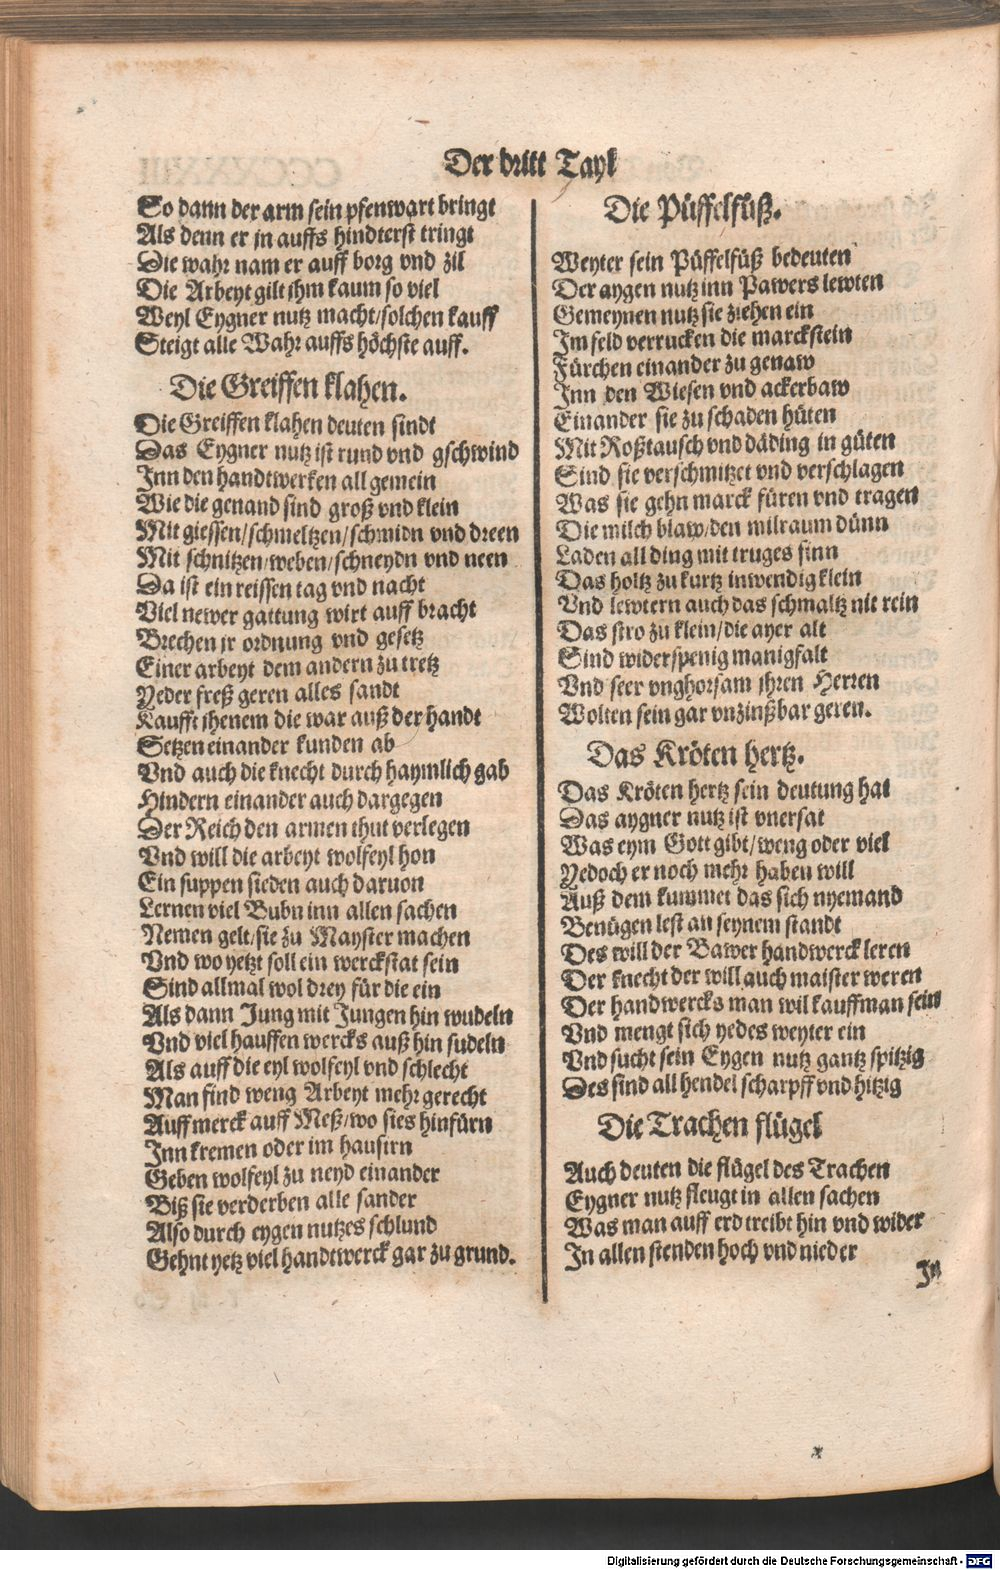 Der dritt Tayl
So dann der arm sein pfenwart bringt
Als denn er jn auffs hindterst tringt
Die wahr nam er auff borg vnd zil
Die Arbeyt gilt jhm kaum so viel
Weyl Eygner nutz macht/solchen kauff
Steigt alle Wahr auffs höchste auff.
Die Greiffen klahen.
Die Greiffen klahen deuten sindt
Das Eygner nutz ist rund vnd gschwind
Inn den handtwerken all gemein
Wie die genand sind groß vnd klein
Mit giessen/schmeltzen/schmidn vnd dreen
Mit schnitzen/weben/schneydn vnd neen
Da ist ein reissen tag vnd nacht
Viel newer gattung wirt auff bracht
Brechen jr ordnung vnd gesetz
Einer arbeyt dem andern zu tretz
Yeder freß geren alles sandt
Kaufft jhenem die war auß der handt
Setzen einander kunden ab
Vnd auch die knecht durch haymlich gab
Hindern einander auch dargegen
Der Reich den armen thut verlegen
Vnd will die arbeyt wolfeyl hon
Ein suppen sieden auch daruon
Lernen viel Bubn inn allen sachen
Nemen gelt/sie zu Mayster machen
Vnd wo yetzt soll ein werckstat sein
Sind allmal wol drey für die ein
Als dann Jung mit Jungen hin wudeln
Vnd viel hauffen wercks auß hin sudeln
Als auff die eyl wolfeyl vnd schlecht
Man find weng Arbeyt mehr gerecht
Auff merck auff Meß/wo sies hinfürn
Inn kremen oder im hausirn
Geben wolfeyl zu neyd einander
Biß sie verderben alle sander
Also durch eygen nutzes schlund
Gehnt yetz viel handtwerck gar zu grund.
Die Püffelfüß.
Weyter sein Püffelfüß bedeuten
Der aygen nutz inn Pawers lewten
Gemeynen nutz sie ziehen ein
Im feld verrucken die marckstein
Fürchen einander zu genaw
Inn den Wiesen vnd ackerbaw
Einander sie zu schaden hüten
Mit Roßtausch vnd däding in güten
Sind sie verschmitzet vnd verschlagen
Was sie gehn marck füren vnd tragen
Die milch blaw/den milraum dünn
Laden all ding mit truges sinn
Das holtz zu kurtz inwendig klein
Vnd lewtern auch das schmaltz nit rein
Das stro zu klein/die ayer alt
Sind widerspenig manigfalt
Vnd seer vnghorsam jhren Herren
Wolten sein gar vnzinßbar geren.
Das Kröten hertz.
Das Kröten hertz sein deutung hat
Das aygner nutz ist vnersat
Was eym Gott gibt/weng oder viel
Yedoch er noch mehr haben will
Auß dem kummet das sich nyemand
Benügen lest an seynem standt
Des will der Bawer handwerck leren
Der knecht der will auch maister weren
Der handwercks man wil kauffman sein
Vnd mengt sich yedes weyter ein
Vnd sucht sein Eygen nutz gantz spitzig
Des sind all hendel scharpff vnd hitzig
Die Trachen flügel
Auch deuten die flügel des Trachen
Eygner nutz fleugt in allen sachen
Was man auff erd treibt hin vnd wider
In allen stenden hoch vnd nieder
In
Digitalisierung gefördert durch die Deutsche Forschungsgemeinschaft - DFG